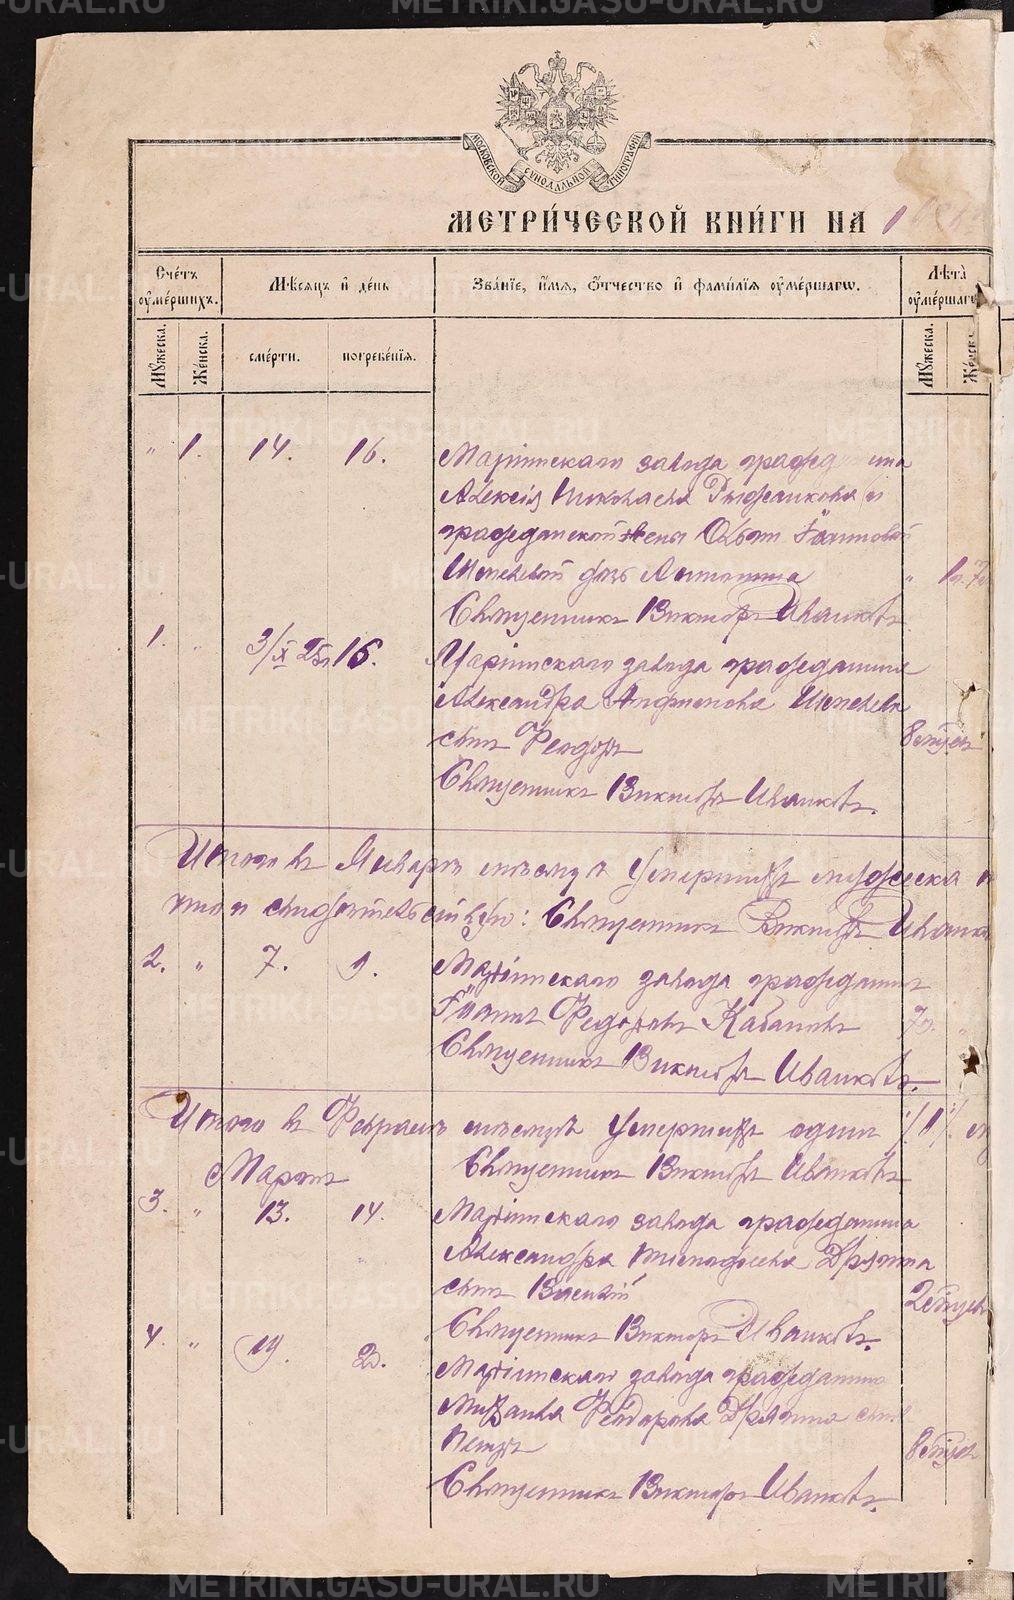 METRIKI.GASO-URAL.RU
МОСКОВСКОЙ СѴНОДАЛЬНОЙ ТИПОГРАФИИ
МЕТРИ́ЧЕСКОЙ КНИ́ГИ НА 1
Сче́тъ ᲂу҆ме́ршихъ.
Мѣ́сяцъ и҆ де́нь
Зва́нїе, и҆́мя, ѻ҆́тчество и҆ фами́лїя ᲂу҆ме́ршагѡ.
Лѣта̀ ᲂу҆ме́ршагѡ
Мꙋ́жеска.
Же́нска.
сме́рти.
погребе́нїѧ.
Мꙋ́жеска.
Же́нска
" 1. 14. 16. Маріинскаго завода гражданина
Алексія Николаева и
гражданской жены Іоанновой
Шмелевой дочь Антонина "
Священникъ Викторъ Иванковъ
1. " 3/X 25 16. Маріинскаго завода гражданина
Александра Шмелева
сынъ Феодоръ
Священникъ Викторъ Иванковъ.
Итого въ Январѣ мѣсяцѣ умершихъ мужеска
Священникъ Викторъ Иванковъ
2. " 7. 9. Маріинскаго завода гражданинъ
Іоаннъ Федоровъ Кабановъ
Священникъ Викторъ Иванковъ.
Итого въ Февралѣ мѣсяцѣ умершихъ одинъ /1/.
Священникъ Викторъ Иванковъ
Мартъ
3. " 13. 14. Маріинскаго завода гражданина
Александра Дрягина
сынъ Василій
Священникъ Викторъ Иванковъ.
4. " 19. Маріинскаго завода гражданина
Михаила Феодорова Дрягина сынъ
Петръ
Священникъ Викторъ Иванковъ.